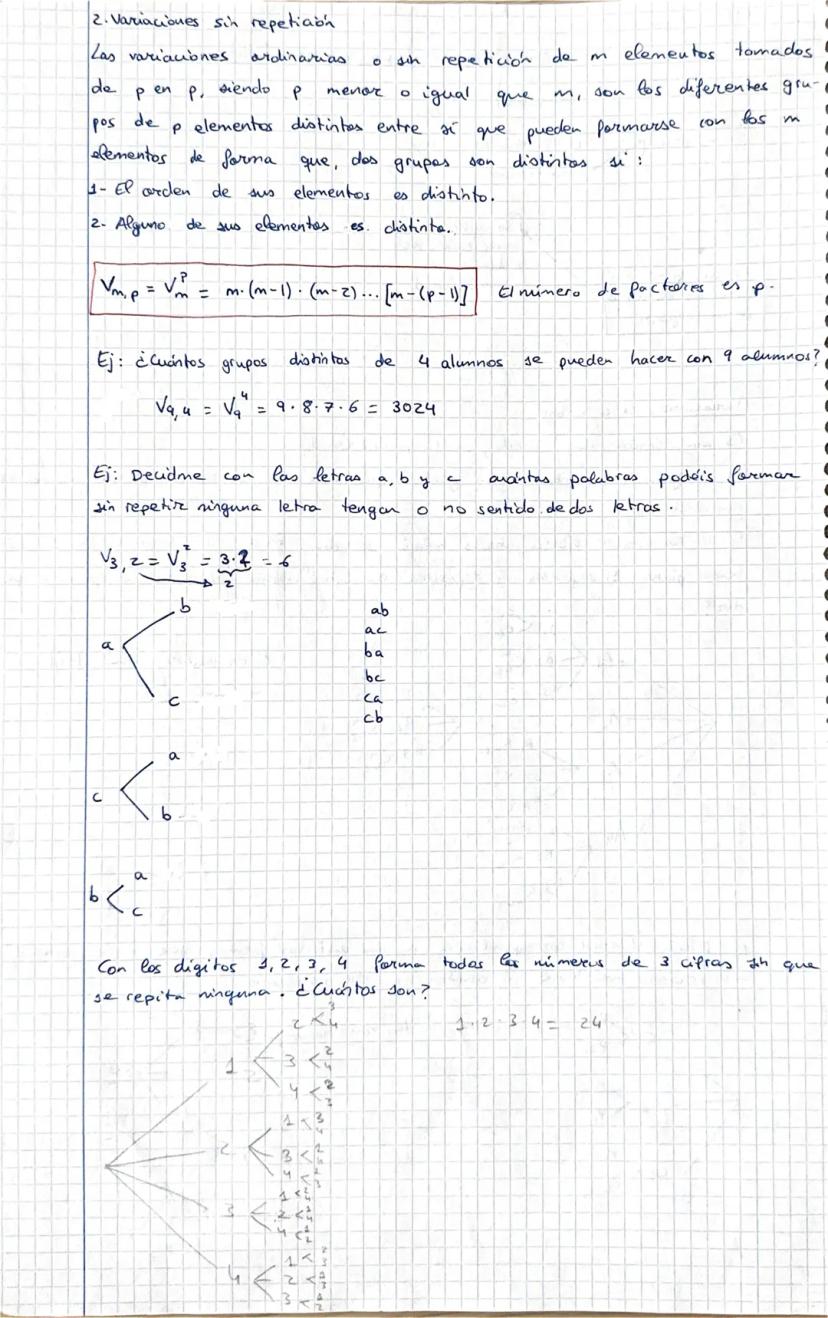 2. Variaciones sin repetición
Las variaciones ordinarias o sin repetición de m elementos tomados
de p en p, siendo p menor o igual que m, son los diferentes gru-
pos de p elementos distintos entre sí que pueden formarse con los m
elementos de forma que, dos grupos son distintos si:
1- El orden de sus elementos es distinto.
2- Alguno de sus elementos es distinto.
Vm,p = Vm^p = m·(m-1)·(m-2)...[m-(p-1)] El número de factores es p.
Ej: ¿Cuántos grupos distintos de 4 alumnos se pueden hacer con 9 alumnos?
V9,4 = V9^4 = 9·8·7·6 = 3024
Ej: Decidme con las letras a, b y c cuántas palabras podéis formar
sin repetir ninguna letra tengan o no sentido de dos letras.
V3,2 = V3^2 = 3·2 = 6
2
a b c
ab
ac
ba
bc
ca
cb
c a b
b a c
Con los dígitos 1, 2, 3, 4 forma todos los números de 3 cifras sin que
se repita ninguna. ¿Cuántos son?
1·2·3·4 = 24
1 2 3 4
3 2 4
4 2 3
2 1 3 4
3
4
3 1
2
4
4 1
2
3